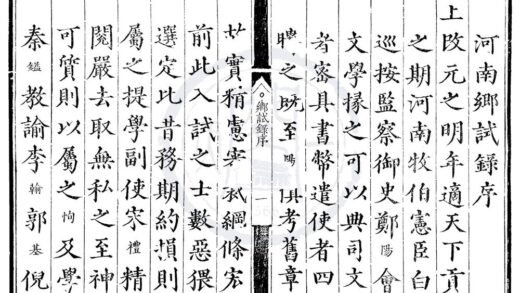 河南鄉試録序
上改元之明年適天下貢
之期河南牧伯憲臣白
巡按監察御史鄭陽會
文學掾之可以典司文
者具書幣遣使者四
聘之既至考舊章
鄉試録序
一
實精慮綱條宏
前此入試之士數惡猥
選定比昔務期約損則
屬之提學副使宋禮精
閱嚴去取無私之至神
可質則以屬之恂及學
秦鎰教諭李翰郭基倪